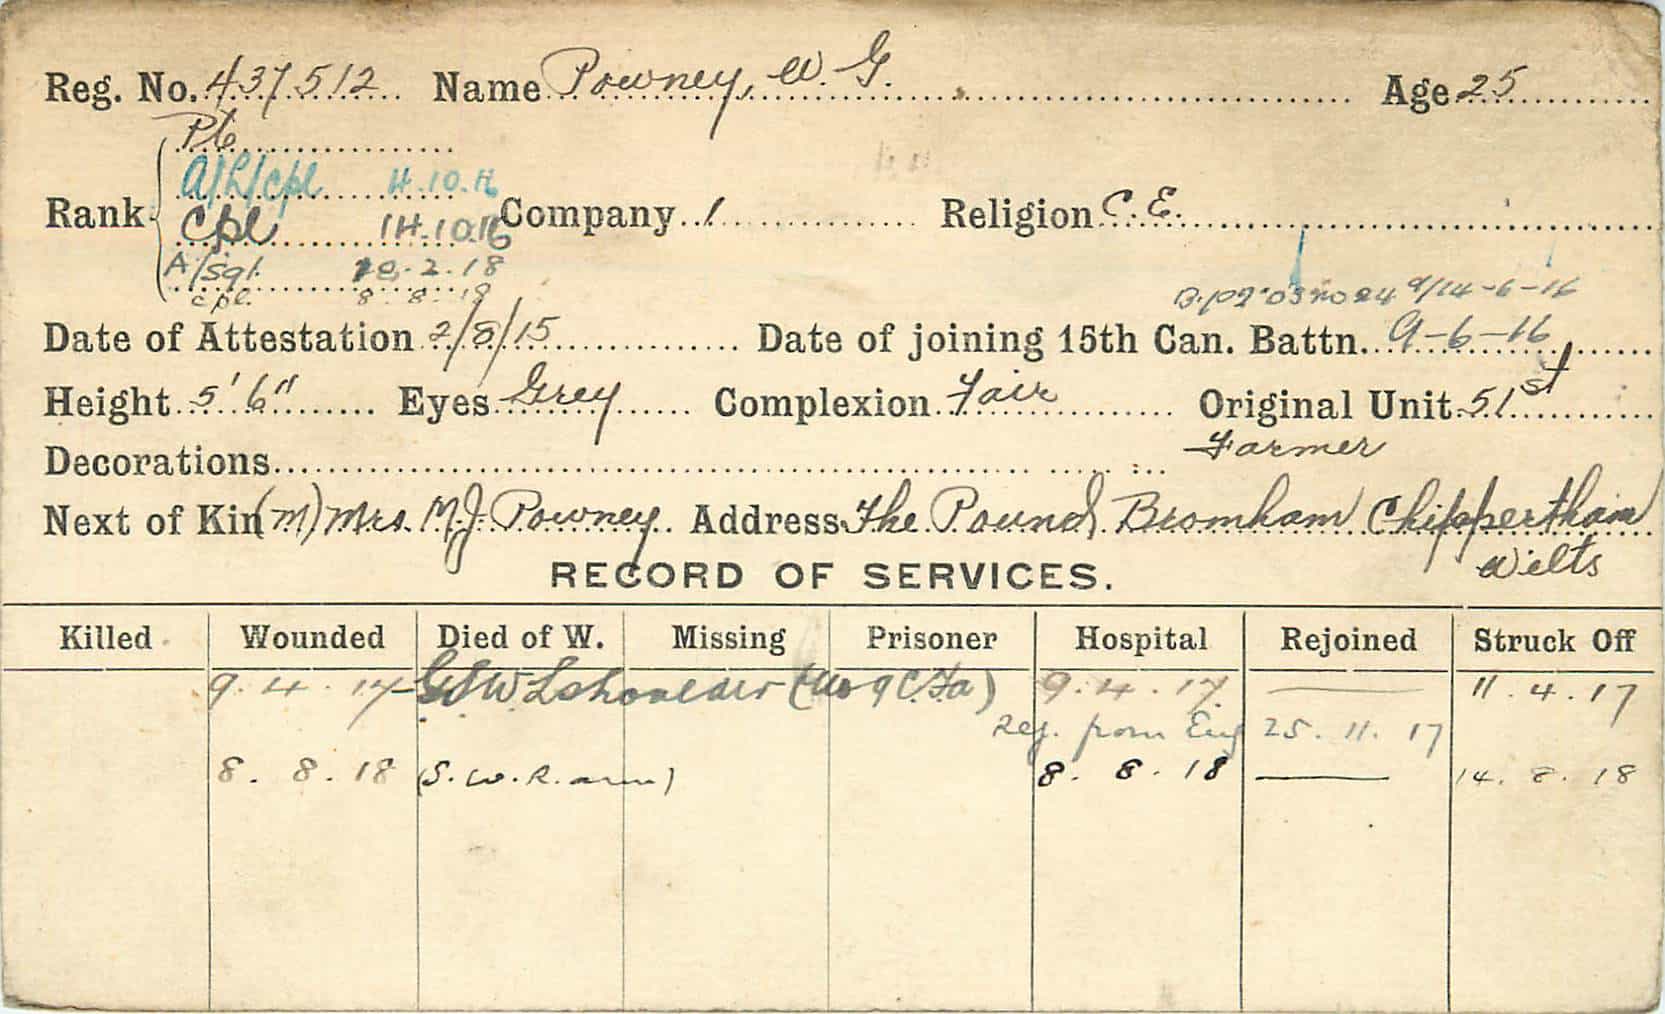 Reg. No. 437512 Name Powney, W. G. Age 25
Pte
A/L/Cpl 4.10.16
Rank Cpl 14.10.16 Company 1 Religion C. E.
A/Sgt. 2.18
cpl. 8. 8. 18
9/14-6-16
Date of Attestation 2/8/15 Date of joining 15th Can. Battn. 9-6-16
Height 5' 6" Eyes Grey Complexion Fair Original Unit 51st
Decorations Farmer
Next of Kin (M) Mrs. M. J. Powney. Address The Pound Bromham Chippertham
Wilts
RECORD OF SERVICES.
Killed Wounded Died of W. Missing Prisoner Hospital Rejoined Struck Off
9. 4. 17 - GSW L shoulder ( 9 C Fa) 9. 4. 17. — 11. 4. 17
Rej. from Eng 25. 11. 17
8. 8. 18 (S. W. R. arm) 8. 8. 18 — 14. 8. 18